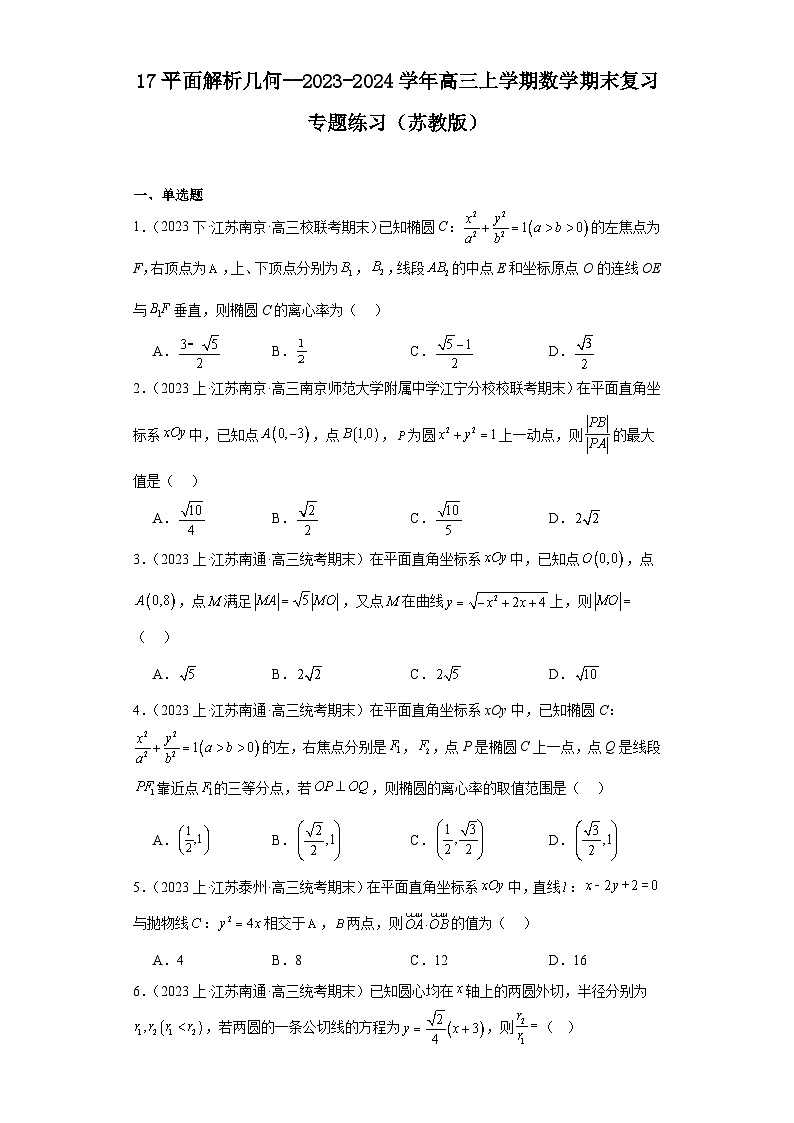 17平面解析几何—2023-2024学年高三上学期数学期末复习
专题练习（苏教版）
一、单选题
1.（2023下·江苏南京·高三校联考期末）已知椭圆C：x²/a²+y²/b²=1(a>b>0)的左焦点为
F,右顶点为A,上、下顶点分别为B₁，B₂,线段AB₂的中点E和坐标原点O的连线OE
与B₁F垂直，则椭圆C的离心率为（ ）
A．(3-√5)/2 B．1/2 C．(√5-1)/2 D．√3/2
2.（2023上·江苏南京·高三南京师范大学附属中学江宁分校校联考期末）在平面直角坐
标系xOy中，已知点A(0,-3)，点B(1,0)，P为圆x²+y²=1上一动点，则|PB|/|PA|的最大
值是（ ）
A．√10/4 B．√2/2 C．√10/5 D．2√2
3.（2023上·江苏南通·高三统考期末）在平面直角坐标系xOy中，已知点O(0,0)，点
A(0,8)，点M满足|MA|=√5|MO|，又点M在曲线y=√(-x²+2x+4)上，则|MO|=
（ ）
A．√5 B．2√2 C．2√5 D．√10
4.（2023上·江苏南通·高三统考期末）在平面直角坐标系xOy中，已知椭圆C：
x²/a²+y²/b²=1(a>b>0)的左，右焦点分别是F₁，F₂，点P是椭圆C上一点，点Q是线段
PF₁靠近点F₁的三等分点，若OP⊥OQ，则椭圆的离心率的取值范围是（ ）
A．(1/2,1) B．(√2/2,1) C．(1/2,√3/2) D．(√3/2,1)
5.（2023上·江苏泰州·高三统考期末）在平面直角坐标系xOy中，直线l：x-2y+2=0
与抛物线C：y²=4x相交于A，B两点，则OA·OB的值为（ ）
A．4 B．8 C．12 D．16
6.（2023上·江苏南通·高三统考期末）已知圆心均在x轴上的两圆外切，半径分别为
r₁,r₂(r₁<r₂)，若两圆的一条公切线的方程为y=√2/4(x+3)，则r₂/r₁=（ ）